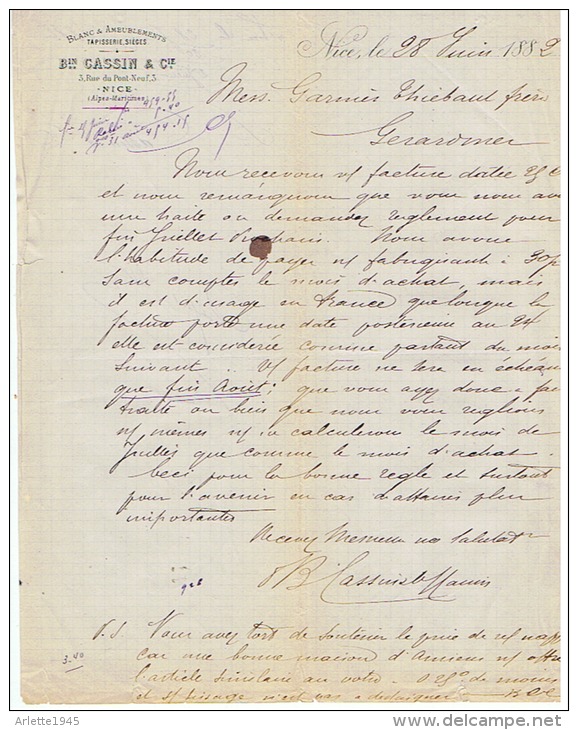 BLANC & AMEUBLEMENTS
TAPISSERIE, SIÈGES
BIN CASSIN & CIE
3, Rue du Pont-Neuf, 3
NICE
(Alpes-Maritimes)
Nice, le 28 Juin 1882
Mess. Garnier Thiebaut frères
Gerardmer
Nous recevons v/ facture datée 25 C
et nous remarquons que vous nous av
une traite ou demandez reglement pour
fin Juillet Prochain. Nous avons
l'habitude de payer n/ fabriquant à 30
sans comptes le mois d'achat, mais
il est d'usage en France que lorsque la
facture porte une date posterieure au 24
elle est considerée comme partant du mois
suivant .. V/ facture ne sera en échéan
que fin Août; que vous ayez donc à fai
traite ou bien que nous vous reglions
n/ mêmes n/ ne calculerons le mois de
Juillet que comme le mois d'achat.
Ceci pour la bonne regle et surtout
pour l'avenir en cas d'affaires plus
importantes
Recevez Messieurs nos Salutat
P.S. Vous avez tort de soutenir le prix de v/ napp
3.40
car une bonne maison d'Amiens n/ offre
l'article similaire au votre de moins
et s/ tissage n'est pas a dedaigner B C & C
Arlette1945
www.delcampe.net